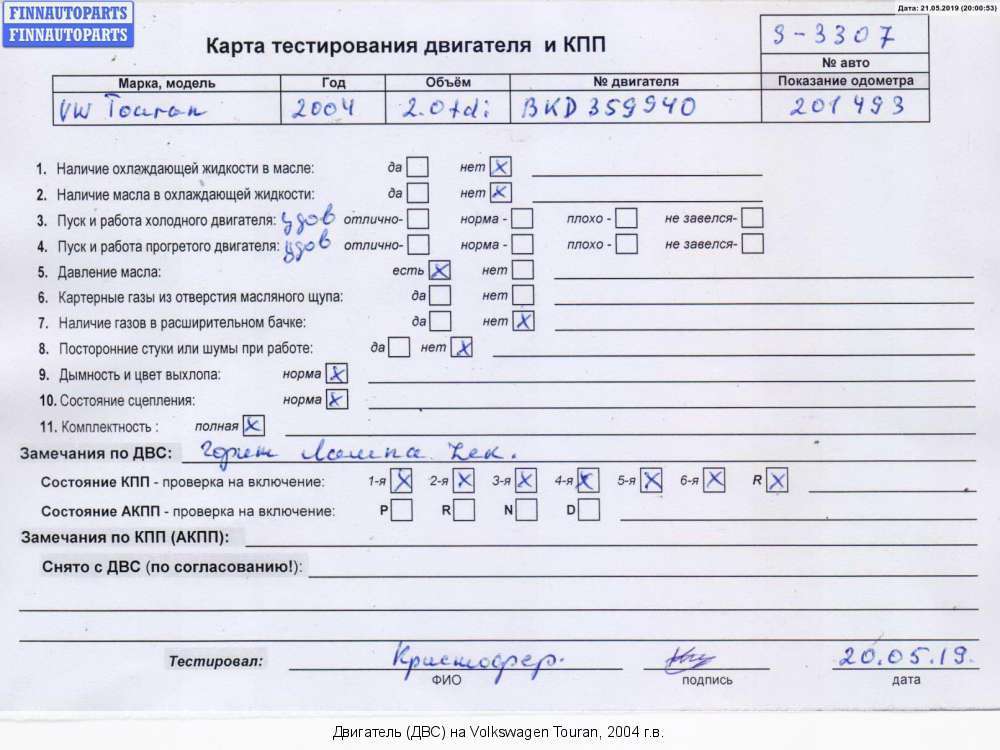 FINNAUTOPARTS
FINNAUTOPARTS
Дата: 21.05.2019 (20:00:53)
Карта тестирования двигателя и КПП
3-3307
№ авто
Марка, модель Год Объём № двигателя Показание одометра
VW Touran 2004 2.0 tdi BKD 359940 201493
1. Наличие охлаждающей жидкости в масле: да нет X
2. Наличие масла в охлаждающей жидкости: да нет X
3. Пуск и работа холодного двигателя: удов отлично- норма - плохо - не завелся-
4. Пуск и работа прогретого двигателя: удов отлично- норма - плохо - не завелся-
5. Давление масла: есть X нет
6. Картерные газы из отверстия масляного щупа: да нет
7. Наличие газов в расширительном бачке: да нет X
8. Посторонние стуки или шумы при работе: да нет X
9. Дымность и цвет выхлопа: норма X
10. Состояние сцепления: норма X
11. Комплектность : полная X
Замечания по ДВС: Горит Лампа Чек.
Состояние КПП - проверка на включение: 1-я X 2-я X 3-я X 4-я X 5-я X 6-я X R X
Состояние АКПП - проверка на включение: P R N D
Замечания по КПП (АКПП):
Снято с ДВС (по согласованию!):
Тестировал: Кристофер. 20.05.19.
ФИО подпись дата
Двигатель (ДВС) на Volkswagen Touran, 2004 г.в.